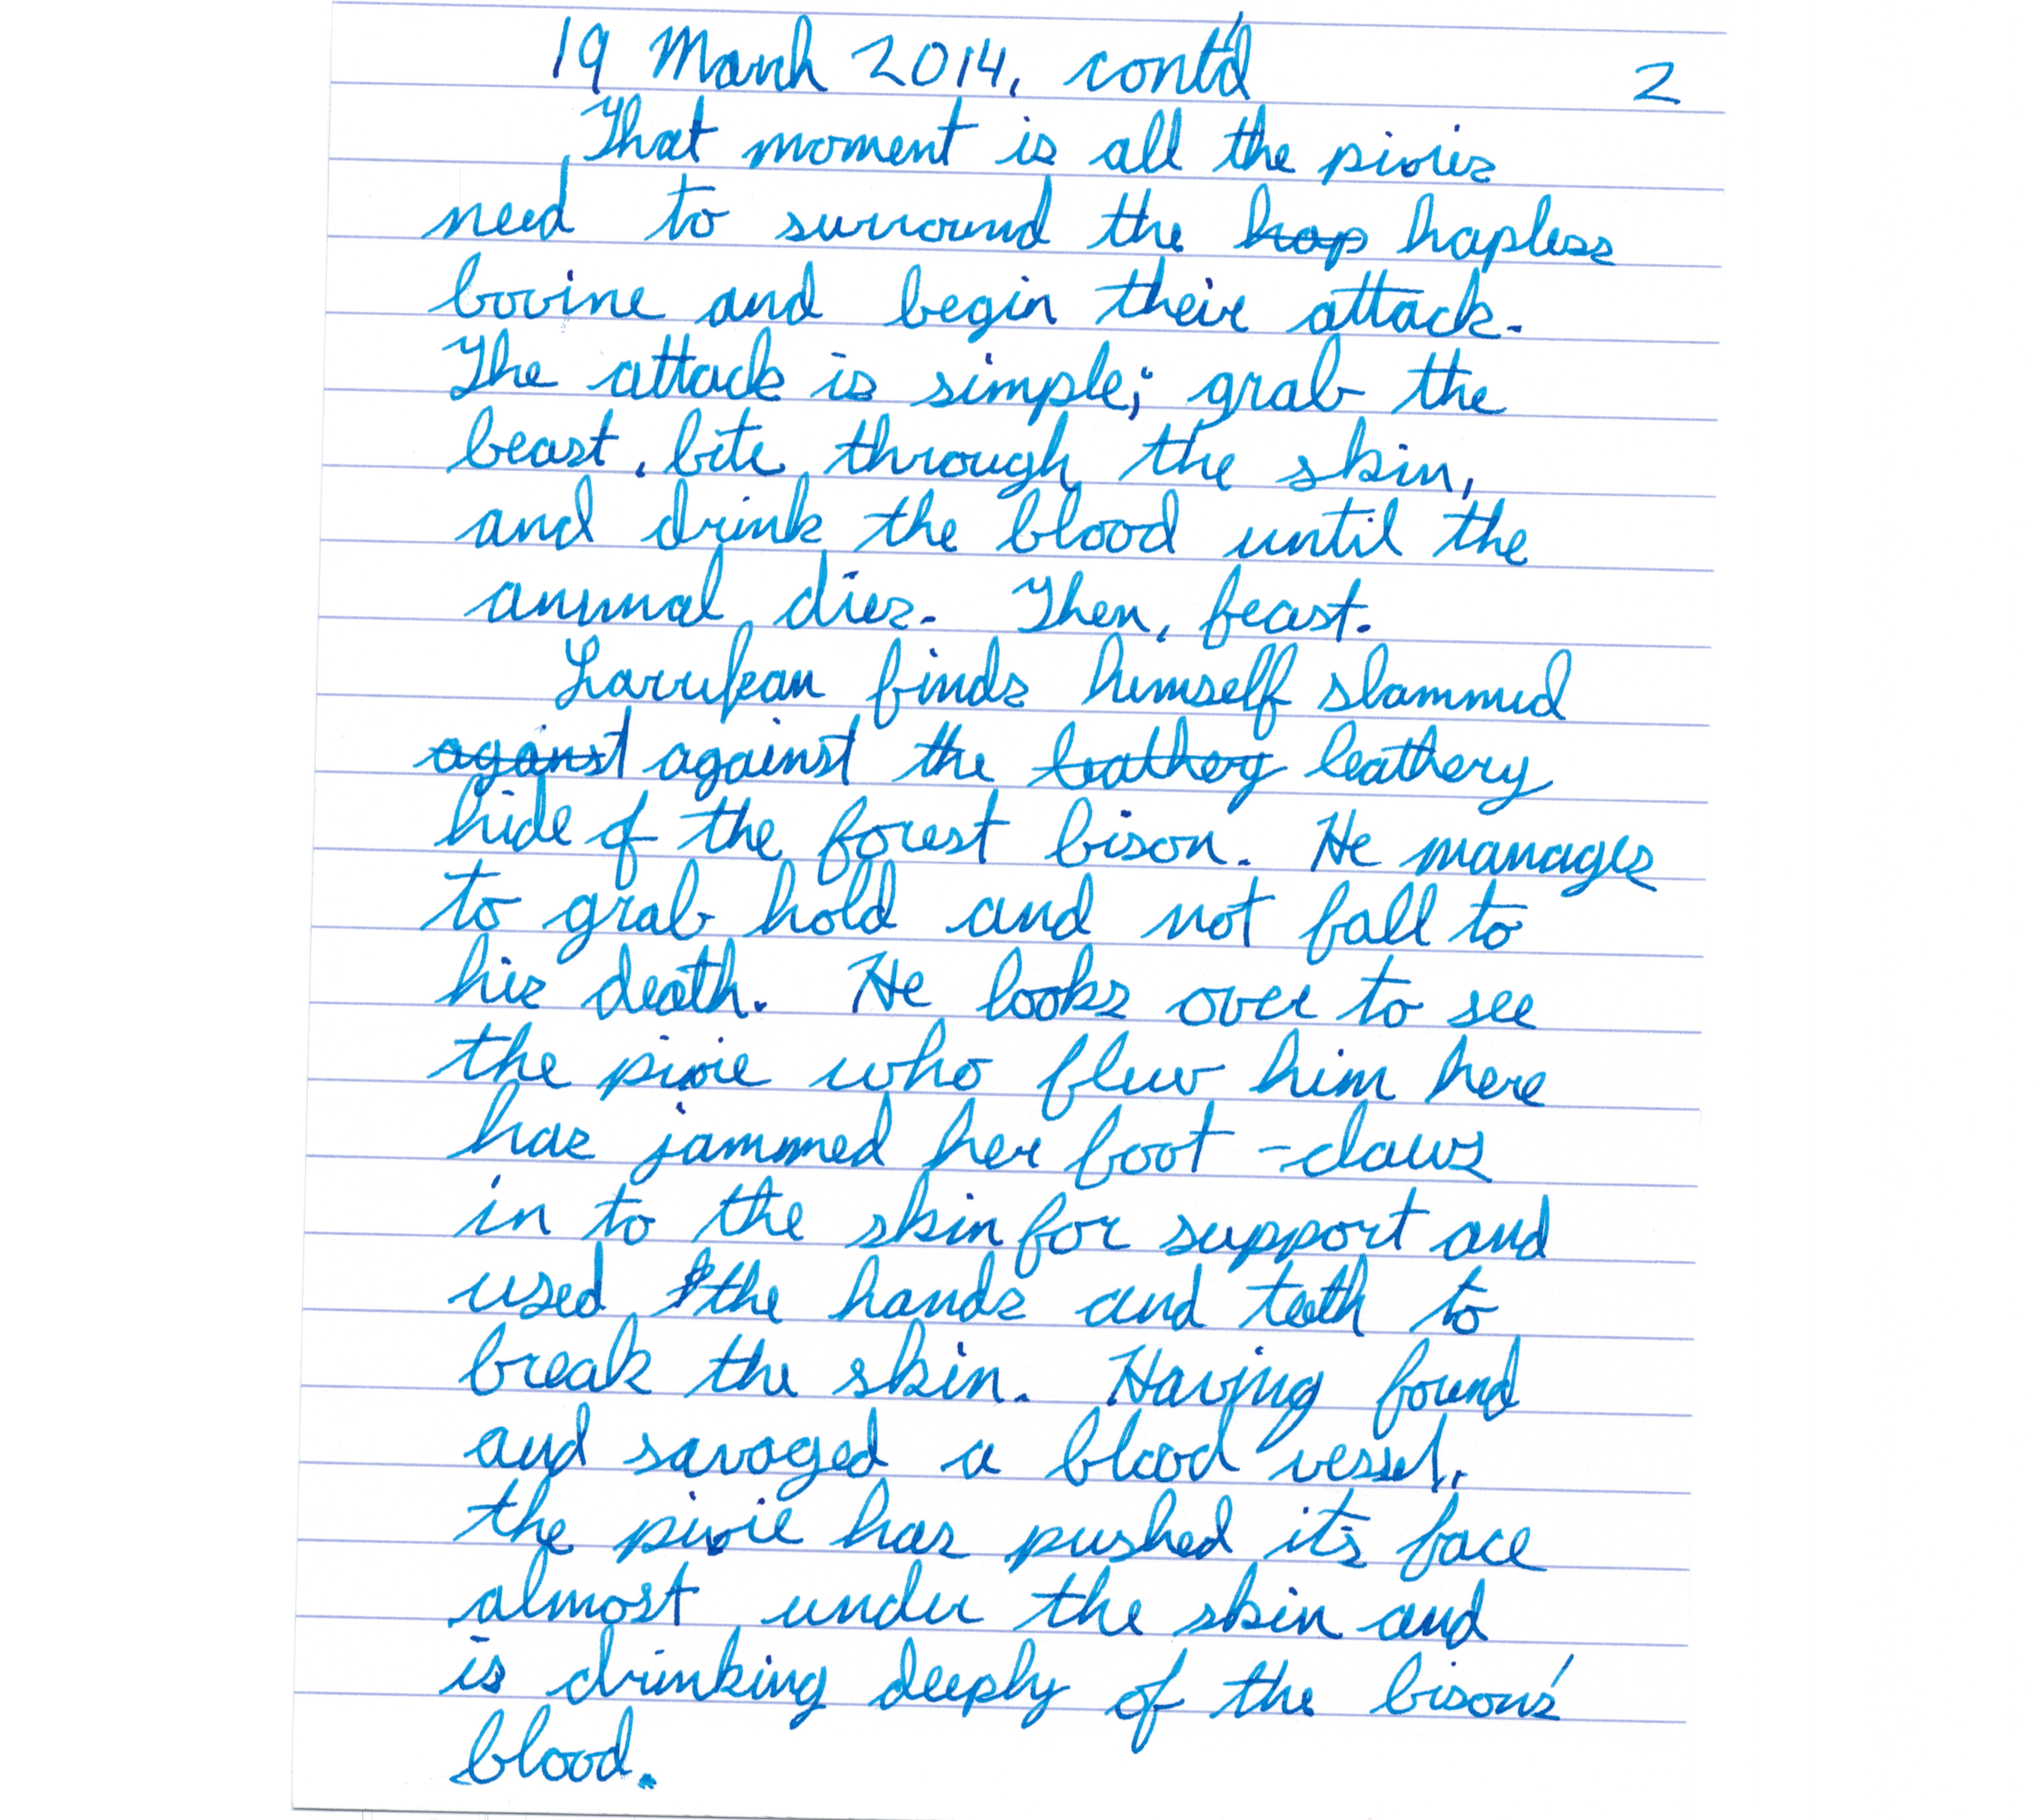 19 March 2014, cont'd 2
That moment is all the pixies
need to surround the hap hapless
bovine and begin their attack.
The attack is simple; grab the
beast, bite through the skin,
and drink the blood until the
animal dies. Then, feast.
Larrikan finds himself slammed
against against the leathery leathery
hide of the forest bison. He manages
to grab hold and not fall to
his death. He looks over to see
the pixie who flew him here
has jammed her foot-claws
in to the skin for support and
used the hands and teeth to
break the skin. Having found
and savaged a blood vessel,
the pixie has pushed its face
almost under the skin and
is drinking deeply of the bison's
blood.